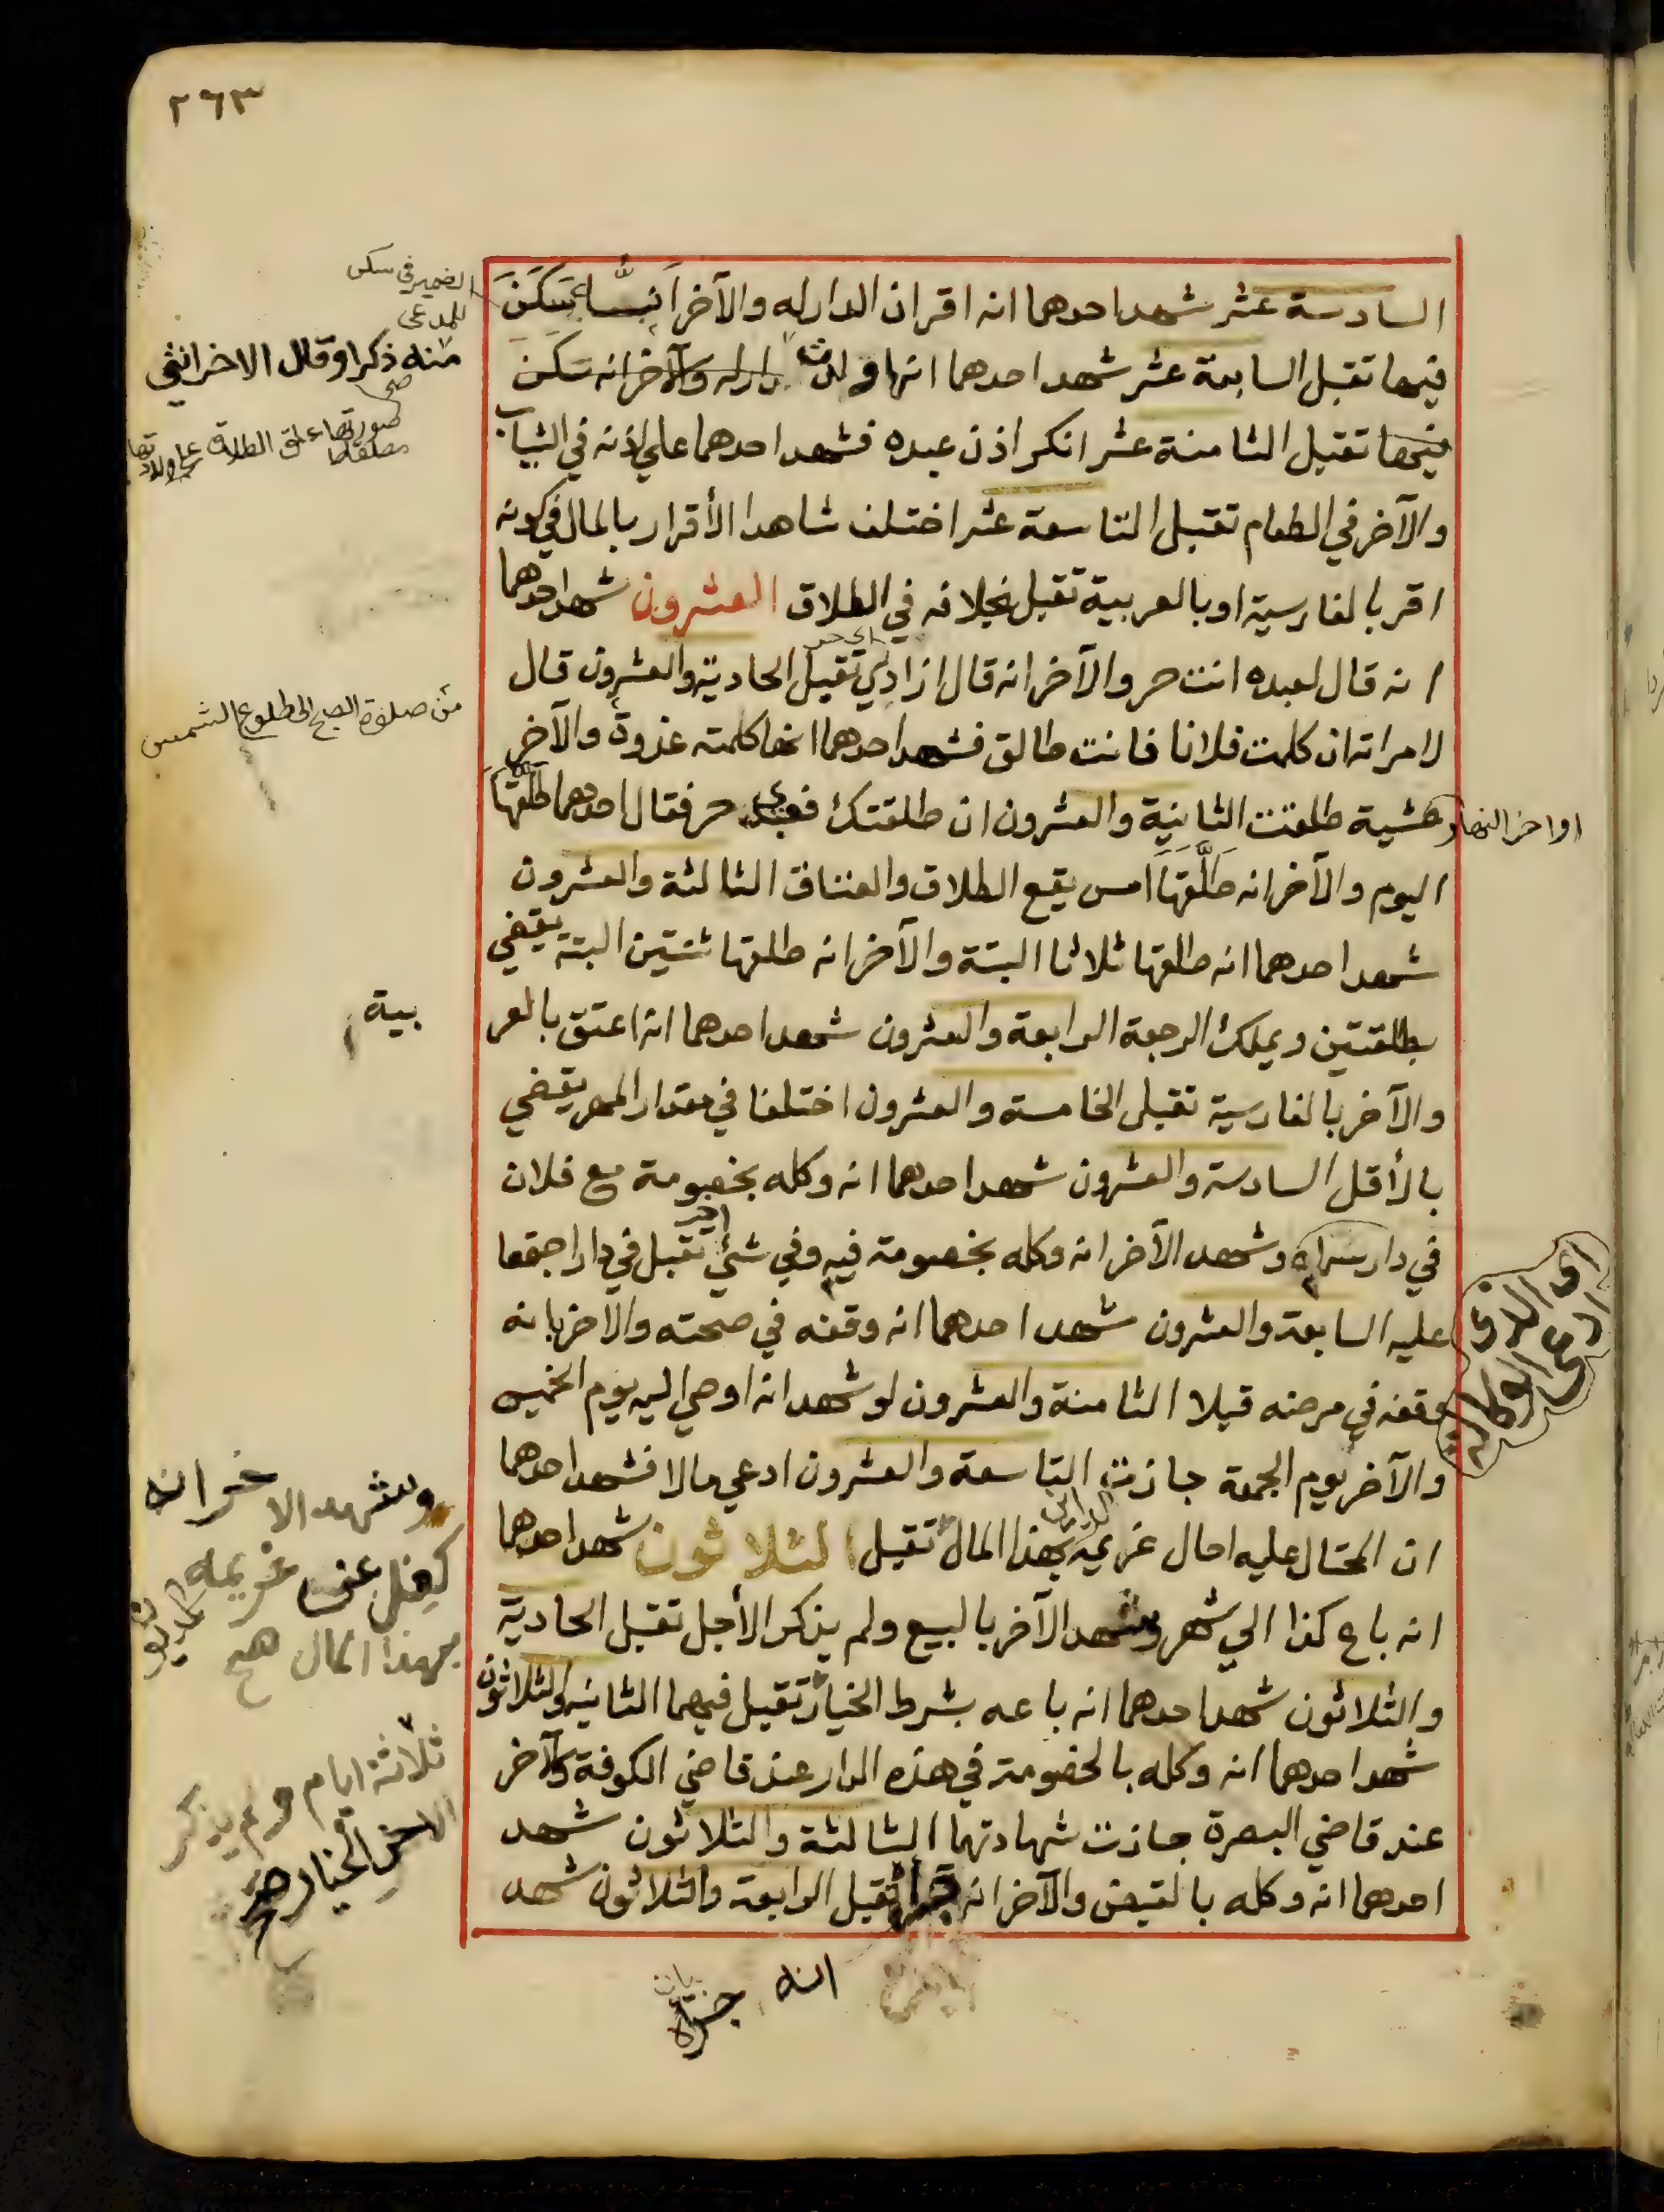 ٢٦٣
السادسة عشر شهد احدهما انه اقر ان الدار له والآخر انه سكن
فيها تقبل السابعة عشر شهد احدهما انها ولدت دار له والآخر انه سكن
فيها تقبل الثامنة عشر انكر اذن عبده فشهد احدهما علي اذنه في الثياب
والآخر في الطعام تقبل التاسعة عشر اختلف شاهدا الأقرار بالمال في كونه
اقر بالفارسية او بالعربية تقبل بخلافه في الطلاق العشرون شهد احدهما
انه قال لعبده انت حر والآخر انه قال ازادي تقبل الحادية والعشرون قال
لامراته ان كلمت فلانا فانت طالق فشهد احدهما انها كلمته غدوة والآخر
عشية طلقت الثانية والعشرون ان طلقتك فعبدي حر فقال احدهما طلقها
اليوم والآخر انه طَلَّقَهَا امس يقع الطلاق والعتاق الثالثة والعشرون
شهد احدهما انه طلقها ثلاثا البتة والآخر انه طلقها ثنتين البتة يقضي
بطلقتين ويملك الرجعة الرابعة والعشرون شهد احدهما انه اعتق بالعر
والآخر بالفارسية تقبل الخامسة والعشرون اختلفا في مقدار المهر يقضي
بالأقل السادسة والعشرون شهد احدهما انه وكله بخصومة مع فلان
في دار سماه وشهد الآخر انه وكله بخصومة فيه وفي شئ اخر تقبل في دار اجتمعا
عليه السابعة والعشرون شهد احدهما انه وقفه في صحته والآخر بانه
وقفه في مرضه قبلا الثامنة والعشرون لو شهد انه اوصي اليه يوم الخميس
والآخر يوم الجمعة جازت التاسعة والعشرون ادعي مالا فشهد احدهما
ان المحتال عليه احال غريمه بهذا المال تقبل الثلاثون شهد احدهما
انه باع كذا الي شهر وشهد الآخر بالبيع ولم يذكر الأجل تقبل الحادية
والثلاثون شهد احدهما انه باعه بشرط الخيار تقبل فيهما الثانية والثلاثون
شهد احدهما انه وكله بالخصومة في هذه الدار عند قاضي الكوفة والآخر
عند قاضي البصرة جازت شهادتهما الثالثة والثلاثون شهد
احدهما انه وكله بالقبض والآخر انه تقبل الرابعة والثلاثون شهد
انه جراه
الضمير في سكن
للمدعى
منه ذكرا وقال الاخر انثي
صح
صورتها علق الطلاق على ولادتها
من صلوة الصبح الى طلوع الشمس
اواخر النهار
بية
اى حر
اى الذى
ادعى الوكالة
وشهد الاخر انه
كفل عن غريمه
بهذا المال صح
ثلاثة ايام ولم يذكر
الاخر الخيار صح